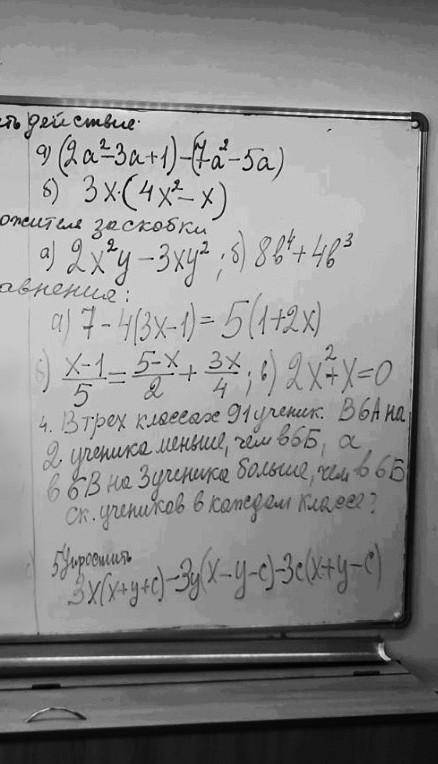 ть действие:
а) (2a²-3a+1)-(7a²-5a)
б) 3x·(4x²-x)
ожителя за скобки
а) 2x²y-3xy²; б) 8b⁴+4b³
авнения:
а) 7-4(3x-1)=5(1+2x)
б) (x-1)/5=(5-x)/2+3x/4; в) 2x²+x=0
4. В трех классах 91 ученик. В 6А на
2 ученика меньше, чем в 6Б, а
в 6В на 3 ученика больше, чем в 6Б
Ск. учеников в каждом классе?
5 Упростить
3x(x+y+c)-3y(x-y-c)-3c(x+y-c)